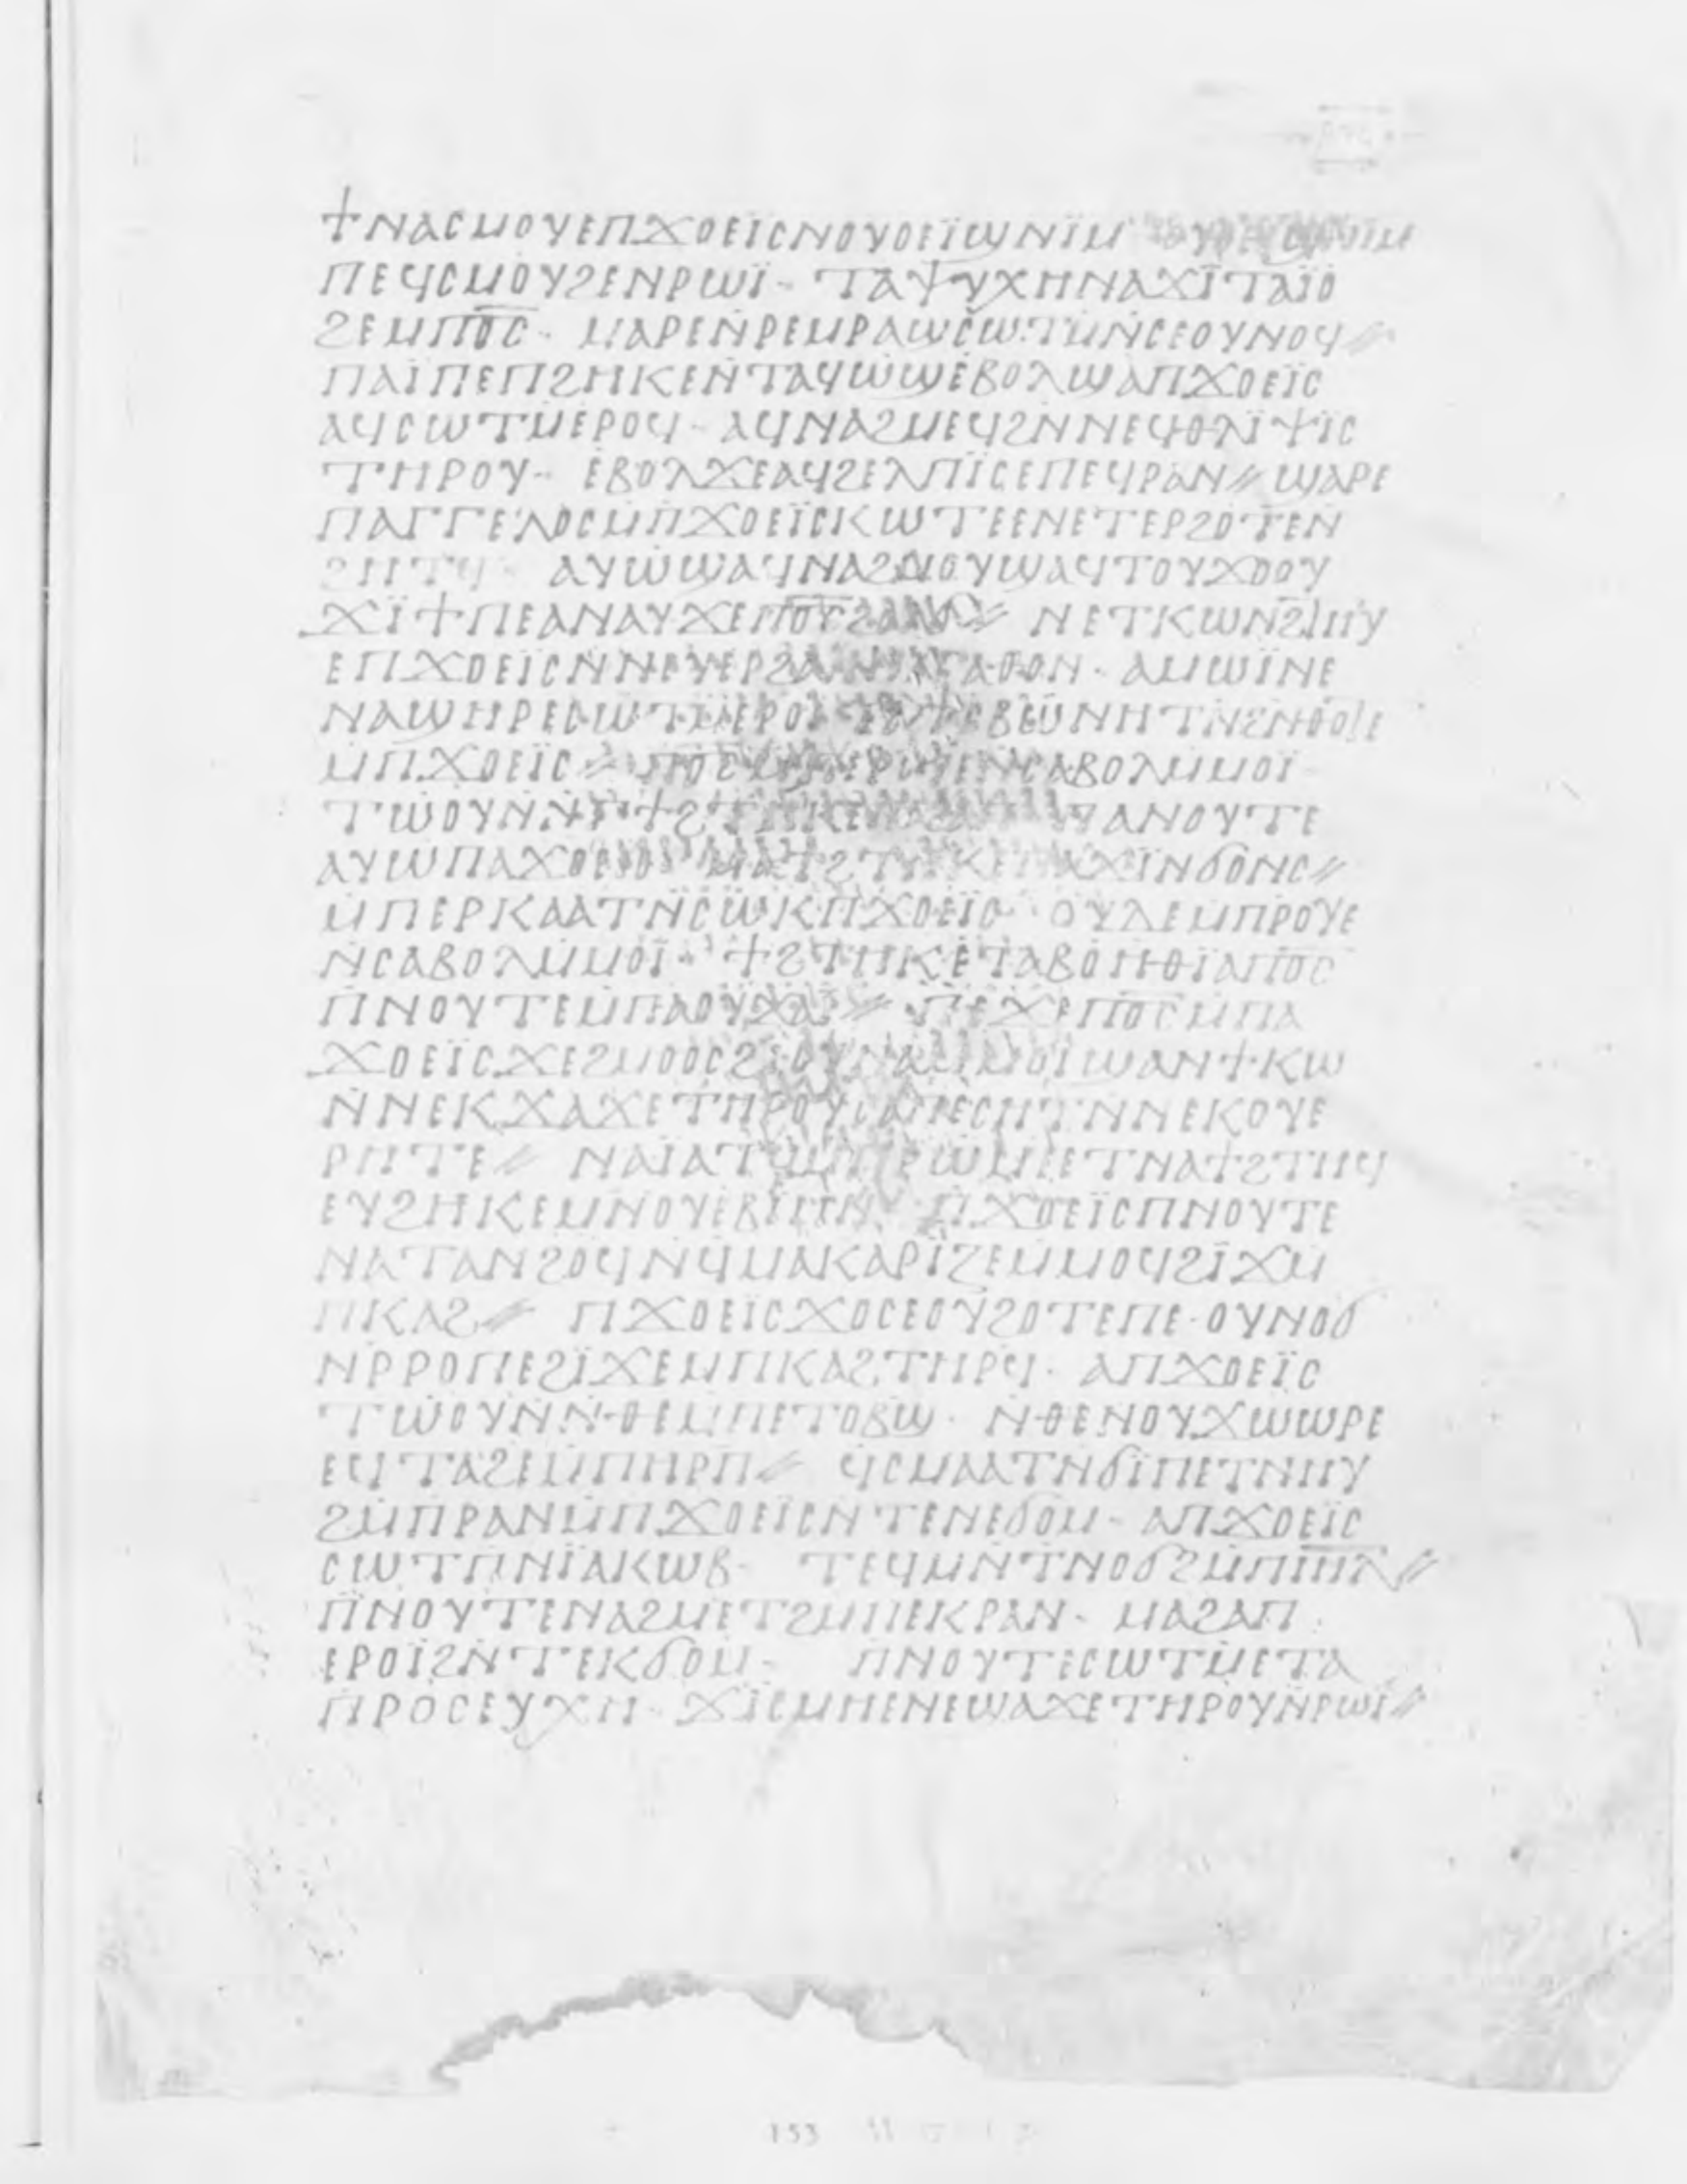 ϯⲛⲁⲥⲙⲟⲩⲉⲡϫⲟⲉⲓ̈ⲥⲛⲟⲩⲟⲉⲓ̈ϣⲛⲓ̈ⲙ
ⲡⲉϥⲥⲙⲟⲩϩⲉⲛⲣⲱⲓ̈ - ⲧⲁⲯⲩⲭⲏⲛⲁϫⲓ̈ⲧⲁⲓ̈ⲟ
ϩⲉⲙⲡ̅ⲟ̅ⲥ̅ - ⲙⲁⲣⲉⲛ̇ⲣⲉⲙⲣⲁϣⲥⲱⲧⲙ̇ⲛ̇ⲥⲉⲟⲩⲛⲟϥ⸗
ⲡⲁⲓ̈ⲡⲉⲡϩⲏⲕⲉⲛ̇ⲧⲁϥⲱϣⲉ̇ⲃⲟⲗϣⲁⲡϫⲟⲉⲓ̈ⲥ
ⲁϥⲥⲱⲧⲙ̇ⲉ̇ⲣⲟϥ - ⲁϥⲛⲁϩⲙⲉϥϩⲛ̇ⲛⲉϥⲑⲗⲓ̈ⲯⲓ̈ⲥ
ⲧⲏⲣⲟⲩ - ⲉ̇ⲃⲟⲗϫⲉⲁϥϩⲉⲗⲡⲓ̈ⲥⲉⲡⲉϥⲣⲁⲛ⸗ ϣⲁⲣⲉ
ⲡⲁⲅⲅⲉⲗⲟⲥⲙ̇ⲡϫⲟⲉⲓ̈ⲥⲕⲱⲧⲉⲉⲛⲉⲧⲉⲣϩⲟⲧⲉⲛ
ϩⲏⲧϥ - ⲁⲩⲱϣⲁϥⲛⲁϩⲙⲟⲩϣⲁϥⲧⲟⲩϫⲟⲟⲩ
ϫⲓ̈ϯⲡⲉⲁⲛⲁⲩϫⲉⲡ̅ⲟ̅ⲥ̅ ⲛⲉⲧⲕⲱⲛ̇ϩⲧⲏⲩ
ⲉⲡϫⲟⲉⲓ̈ⲥⲛ̇ⲛⲉⲩⲉⲣϩⲁⲉ ⲁⲅⲁⲑⲟⲛ - ⲁⲙⲱⲓ̈ⲛⲉ
ⲛⲁϣⲏⲣⲉⲥⲱⲧⲙ̇ⲉⲣⲟⲓ̈ ⲧⲁϯⲥⲃⲉⲩ̇ⲛⲏⲧⲛ̇ϩⲛ̇ⲑⲟⲧⲉ
ⲙ̇ⲡϫⲟⲉⲓ̈ⲥ⸗ ⲡ̅ⲟ̅ⲥ̅ ⲛⲥⲁⲃⲟⲗⲙ̇ⲙⲟⲓ̈
ⲧⲱⲟⲩⲛ ⲡⲁⲛⲟⲩⲧⲉ
ⲁⲩⲱⲡⲁϫⲟⲉⲓ̈ⲥ ⲙⲁϯϩⲧⲏⲕⲉⲡⲁϫⲓ̈ⲛϭⲟⲛⲥ⸗
ⲙ̇ⲡⲉⲣⲕⲁⲁⲧⲛ̇ⲥⲱⲕⲡϫⲟⲉⲓ̈ⲥ - ⲟⲩⲇⲉⲙ̇ⲡⲣⲟⲩⲉ
ⲛ̇ⲥⲁⲃⲟⲗⲙ̇ⲙⲟⲓ̈ - ϯϩⲧⲏⲕⲉ̇ⲧⲁⲃⲟⲏⲑⲓ̈ⲁⲡ̅ⲟ̅ⲥ̅
ⲡⲛⲟⲩⲧⲉⲙ̇ⲡⲁⲟⲩϫⲁⲓ̈⸗ ⲡⲉϫⲉⲡ̅ⲟ̅ⲥ̅ⲙ̇ⲡⲁ
ϫⲟⲉⲓ̈ⲥϫⲉϩⲙⲟⲟⲥϩⲓ̈ⲟⲩⲛⲁⲙ̇ⲙⲟⲓ̈ϣⲁⲛϯⲕⲱ
ⲛ̇ⲛⲉⲕϫⲁϫⲉⲧⲏⲣⲟⲩⲥⲁⲡⲉⲥⲏⲧⲛ̇ⲛⲉⲕⲟⲩⲉ
ⲣⲏⲧⲉ⸗ ⲛⲁⲓ̈ⲁⲧϥⲙ̇ⲡⲣⲱⲙⲉⲉⲧⲛⲁϯϩⲧⲏϥ
ⲉⲩϩⲏⲕⲉⲙⲛⲟⲩⲉ̇ⲃⲓⲏⲛ - ⲡϫⲟⲉⲓ̈ⲥⲡⲛⲟⲩⲧⲉ
ⲛⲁⲧⲁⲛϩⲟϥⲛ̇ϥⲙⲁⲕⲁⲣⲓ̈ⲍⲉⲙ̇ⲙⲟϥϩⲓ̈ϫⲙ̇
ⲡⲕⲁϩ⸗ ⲡϫⲟⲉⲓ̈ⲥϫⲟⲥⲉⲟⲩϩⲟⲧⲉⲡⲉ - ⲟⲩⲛⲟϭ
ⲛ̇ⲣⲣⲟⲡⲉϩⲓ̈ϫⲉⲙⲡⲕⲁϩⲧⲏⲣϥ - ⲁⲡϫⲟⲉⲓ̈ⲥ
ⲧⲱⲟⲩⲛⲛ̇ⲑⲉⲙ̇ⲡⲉⲧⲟⲃϣ - ⲛ̇ⲑⲉⲛⲟⲩϫⲱⲱⲣⲉ
ⲉϥⲧⲁϩⲉⲙ̇ⲡⲏⲣⲡ⸗ ϥⲥⲙⲁⲁⲧⲛ̇ϭⲓ̈ⲡⲉⲧⲛⲏⲩ
ϩⲙ̇ⲡⲣⲁⲛⲙ̇ⲡϫⲟⲉⲓ̈ⲥⲛ̇ⲧⲉⲛⲉϭⲟⲙ - ⲁⲡϫⲟⲉⲓ̈ⲥ
ⲥⲱⲧⲡⲛ̇ⲓ̈ⲁⲕⲱⲃ - ⲧⲉϥⲙⲛ̇ⲧⲛⲟϭϩⲙ̇ⲡⲓ̅ⲏ̅ⲗ̅⸗
ⲡⲛⲟⲩⲧⲉⲛⲁϩⲙⲉⲧϩⲙ̇ⲡⲉⲕⲣⲁⲛ - ⲙⲁϩⲁⲡ
ⲉⲣⲟⲓ̈ϩⲛ̇ⲧⲉⲕϭⲟⲙ - ⲡⲛⲟⲩⲧⲉⲥⲱⲧⲙ̇ⲉⲧⲁ
ⲡⲣⲟⲥⲉⲩⲭⲏ - ϫⲓ̈ⲥⲙⲏⲉⲛⲉϣⲁϫⲉⲧⲏⲣⲟⲩⲛ̇ⲣⲱⲓ̈⸗
153